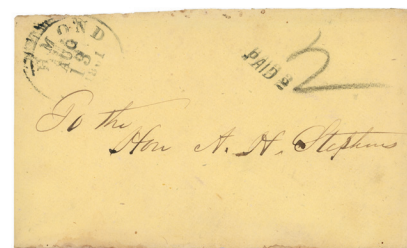 MOND
AUG
PAID 2
2
To the
Hon A. H. Stephens